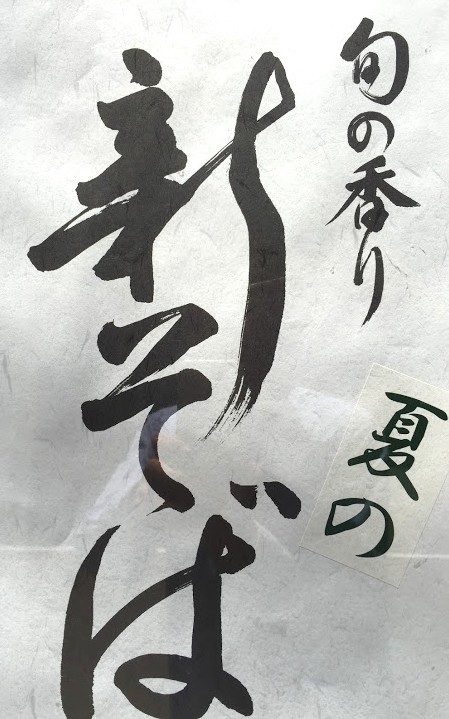 旬の香り
夏の
新そば